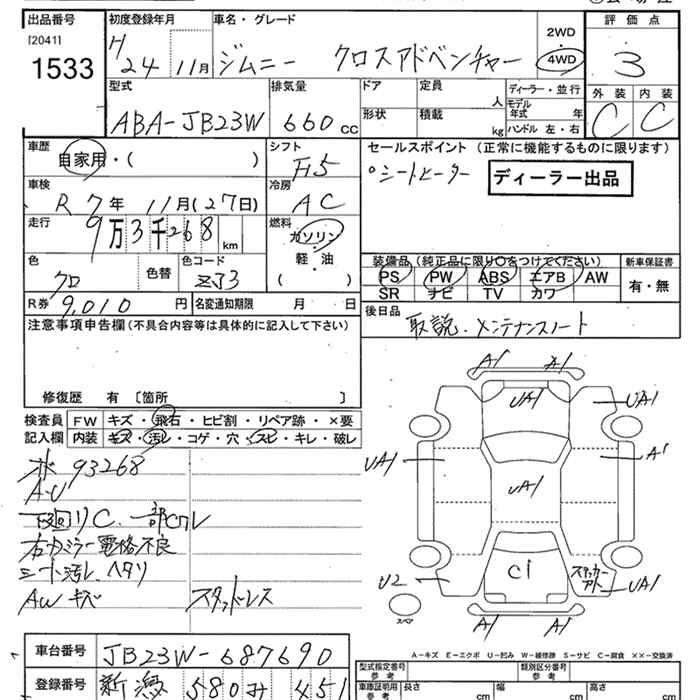 出品番号 初度登録年月 車名・グレード 評価点
[2041] 1533 H24 11月 ジムニー クロスアドベンチャー 2WD・4WD 3
型式 排気量 ドア 定員 人 ディーラー・並行 外装 内装
ABA-JB23W 660cc 形状 積載 kg モデル年式 年 ハンドル 左・右 C C
車歴 シフト セールスポイント (正常に機能するものに限ります)
自家用・( ) F5 シートヒーター ディーラー出品
車検 冷房
R7年 11月(27日) AC
走行 燃料
9万3千268km ガソリン
軽・油
( )
色 色替 色コード
クロ ZJ3
装備品 (純正品に限り○をつけてください) 新車保証書
PS PW ABS エアB AW 有・無
SR ナビ TV カワ
R券 9,010円 名変通知期限 月 日
後日品
取説・メンテナンスノート
注意事項申告欄(不具合内容等は具体的に記入して下さい)
修復歴 有 〔箇所 〕
検査員記入欄 FW キズ・飛石・ヒビ割・リペア跡・×要
内装 キズ・汚レ・コゲ・穴・スレ・キレ・破レ
93268
A・U
下回リC 一部Cクレ
右カミラー電格不良
シート汚レ ヘタリ
AWキズ スタッドレス
A1 A1
UA1 UA1
UA1 A1
UA1
U2 C1 ステッカーアト UA1
スペア A1 A1
A-キズ E-エクボ U-凹み W-補修跡 S-サビ C-腐食 ××-交換済
車台番号 JB23W-687690
登録番号 新潟 580 み 451
型式指定番号 参考 類別区分番号 参考
車庫証明用 参考 長さ cm 幅 cm 高さ cm